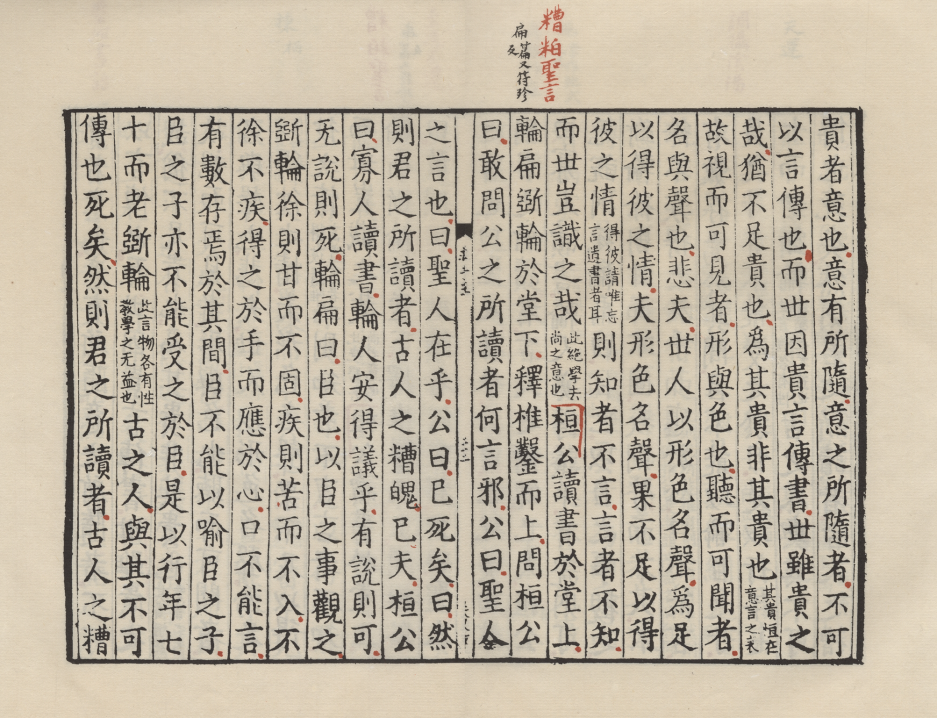 糟粕聖言
扁篇又符珍
反
貴者意也意有所隨意之所隨者不可
以言傳也而世因貴言傳書世雖貴之
哉猶不足貴也為其貴非其貴也其貴恒在意言之表
故視而可見者形與色也聽而可聞者
名與聲也悲夫世人以形色名聲為足
以得彼之情夫形色名聲果不足以得
彼之情得彼請唯忘言遺書者耳則知者不言言者不知
而世豈識之哉此絕學去尚之意也桓公讀書於堂上
輪扁斵輪於堂下釋椎鑿而上問桓公
曰敢問公之所讀者何言邪公曰聖人
之言也曰聖人在乎公曰已死矣曰然
則君之所讀者古人之糟魄已夫桓公
曰寡人讀書輪人安得議乎有說則可
无說則死輪扁曰臣也以臣之事觀之
斵輪徐則甘而不固疾則苦而不入不
徐不疾得之於手而應於心口不能言
有數存焉於其間臣不能以喻臣之子
臣之子亦不能受之於臣是以行年七
十而老斵輪此言物各有性教學之无益也古之人與其不可
傳也死矣然則君之所讀者古人之糟